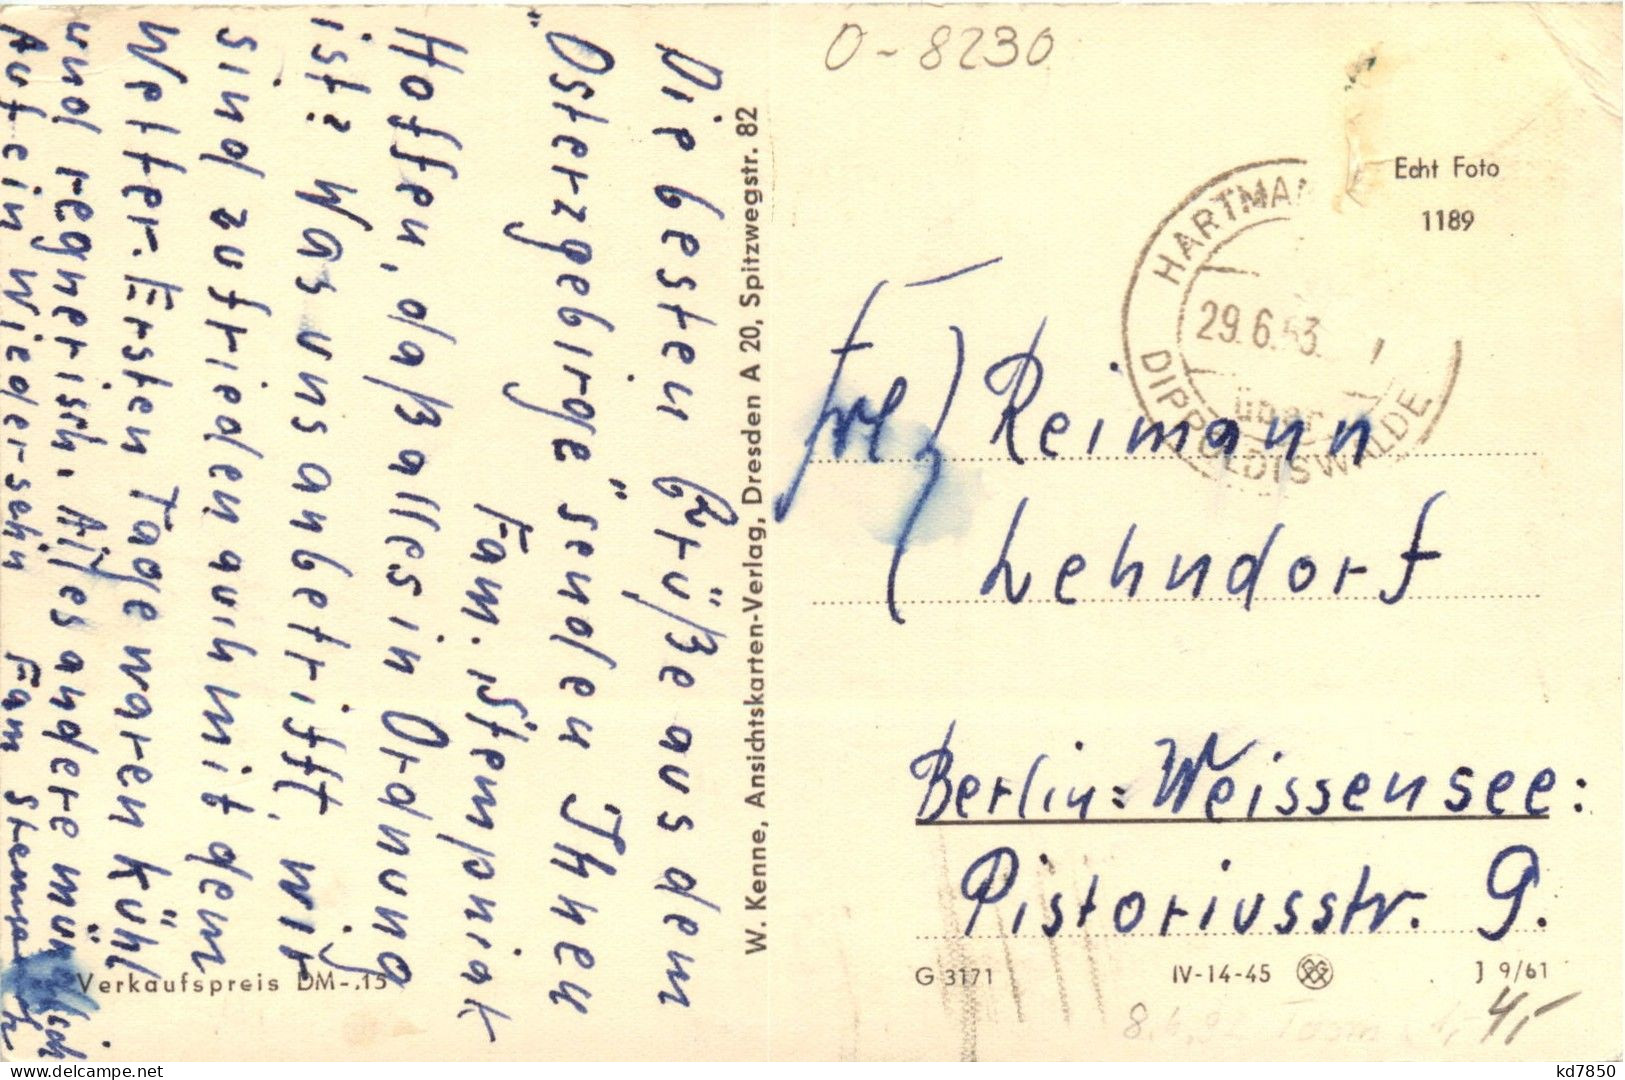 O-8230
Die besten Grüße aus dem
"Osterzgebirge" senden Ihnen
Fam. Stempniak
Hoffen, daß alles in Ordnung
ist? Was uns anbetrifft, wir
sind zufrieden auch mit dem
Wetter. Ersten Tage waren kühl
und regnerisch. Alles andere mündlich
Auf ein Wiedersehn Fam
W. Kenne, Ansichtskarten-Verlag, Dresden A 20, Spitzwegstr. 82
Verkaufspreis DM-.15
Echt Foto
1189
HARTMAN
29.6.63.
über
DIPPOLDISWALDE
Reimann
Lehndorf
Berlin=Weissensee:
Pistoriusstr. 9.
G 3171 IV-14-45 J 9/61
4,-
kd7850